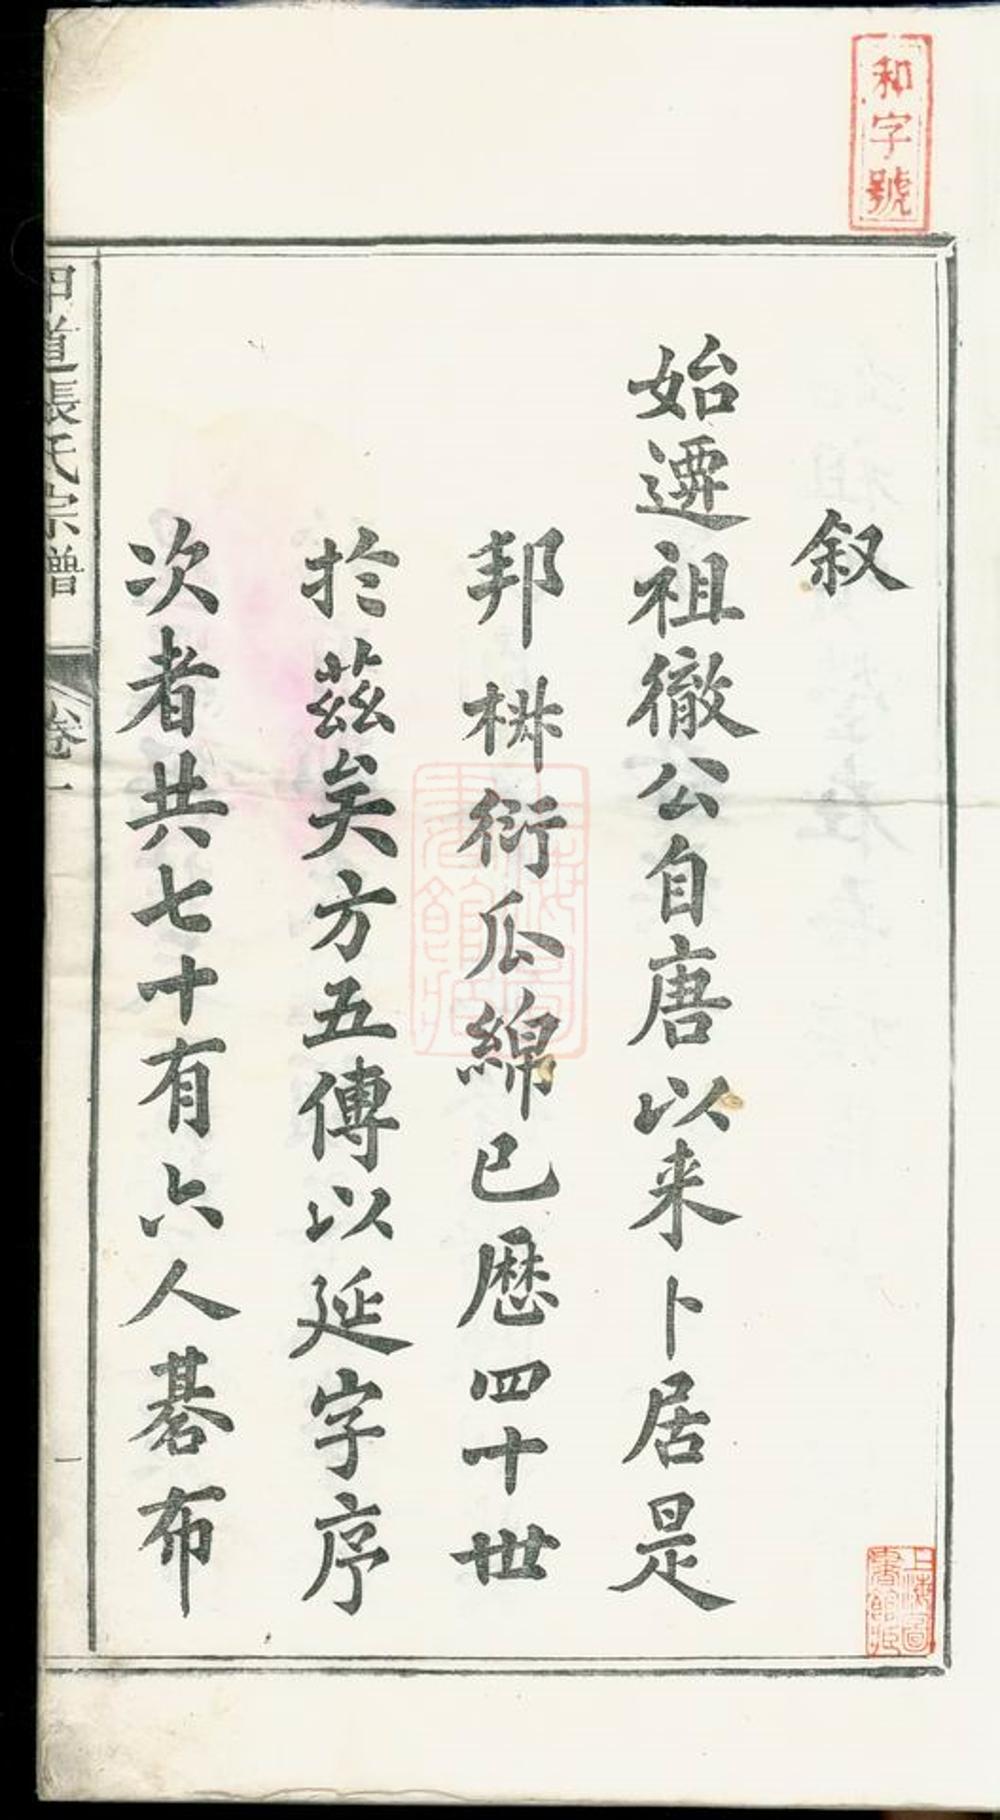 和字號
叙
始遷祖徹公自唐以来卜居是
邦椒衍瓜綿已歷四十世
於茲矣方五傳以延字序
次者共七十有六人碁布
甲道張氏宗譜
卷一
一
上海圖
書館藏
上海圖
書館藏